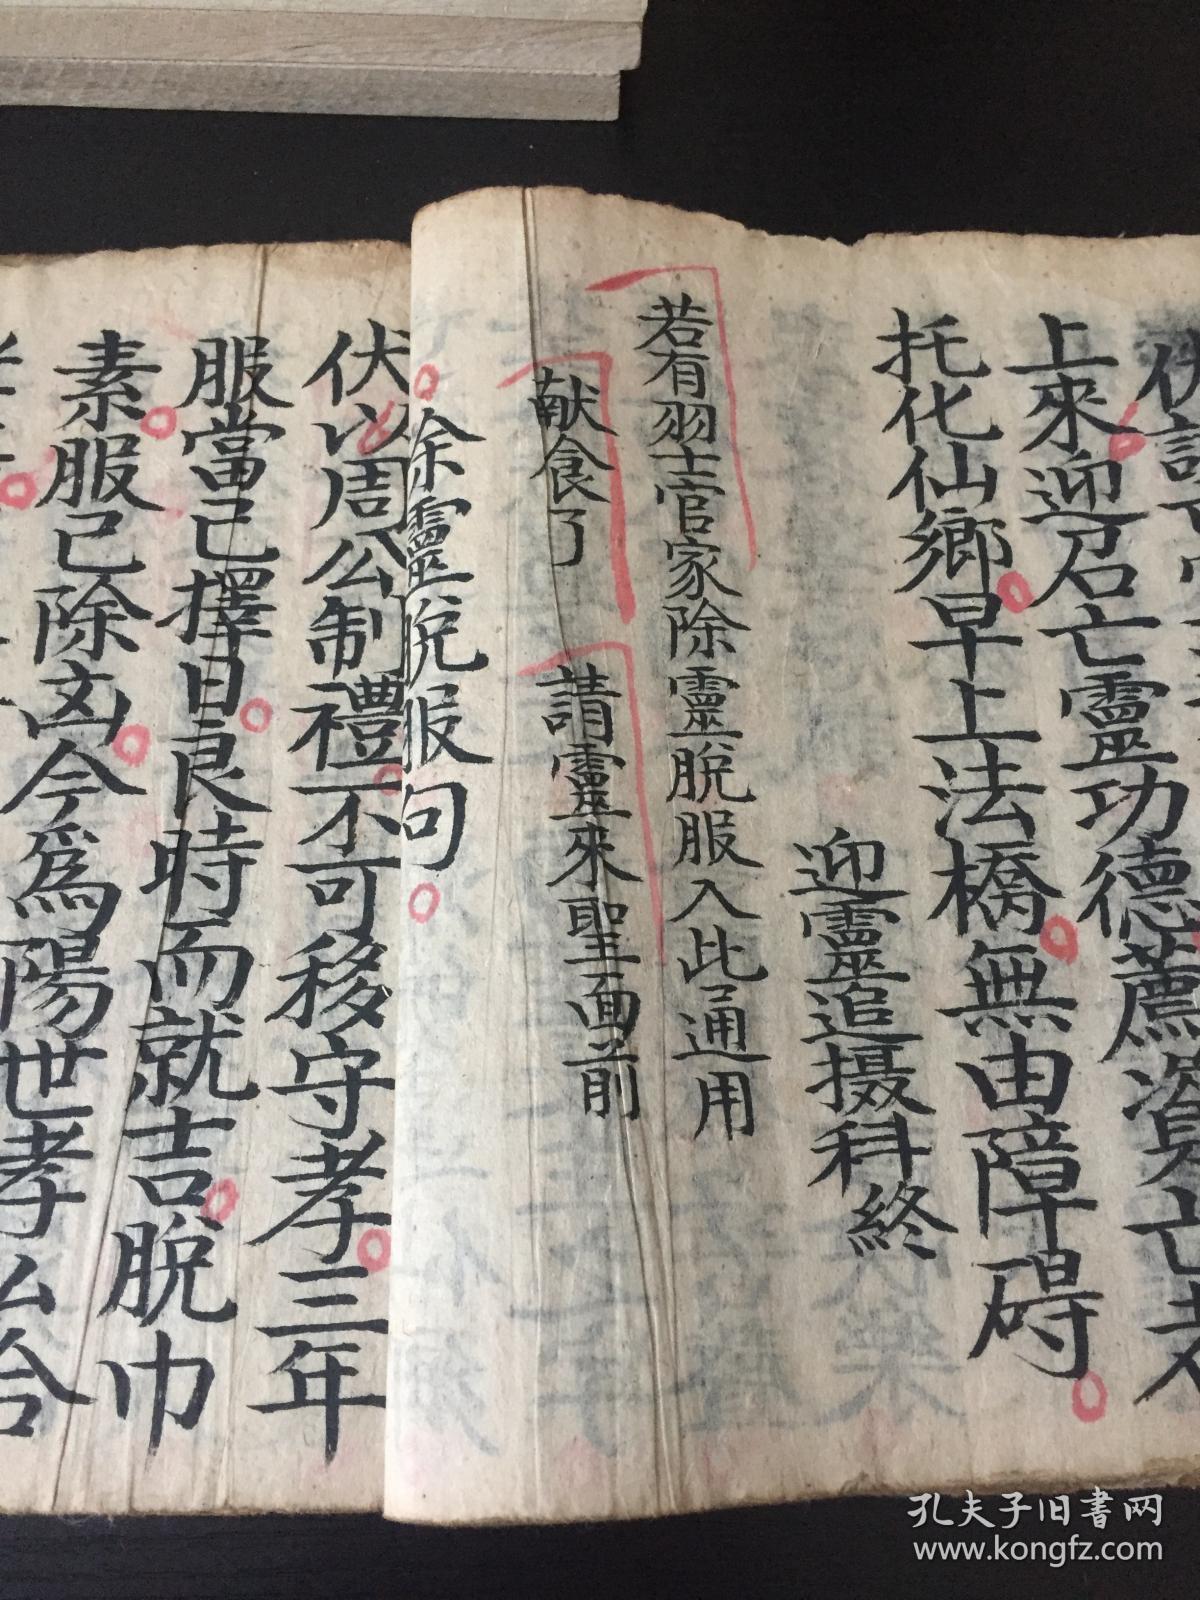 上來迎召亡靈功德薦資亡者
托化仙鄉早上法橋無由障碍
迎靈追摄科終
若有羽士官家除靈脫服入此通用
献食了 請靈來聖面前
除靈脫服句
伏以周公制禮不可移守孝三年
服當已擇日良時而就吉脫巾
素服已除凶今為陽世孝
孔夫子旧书网
www.kongfz.com